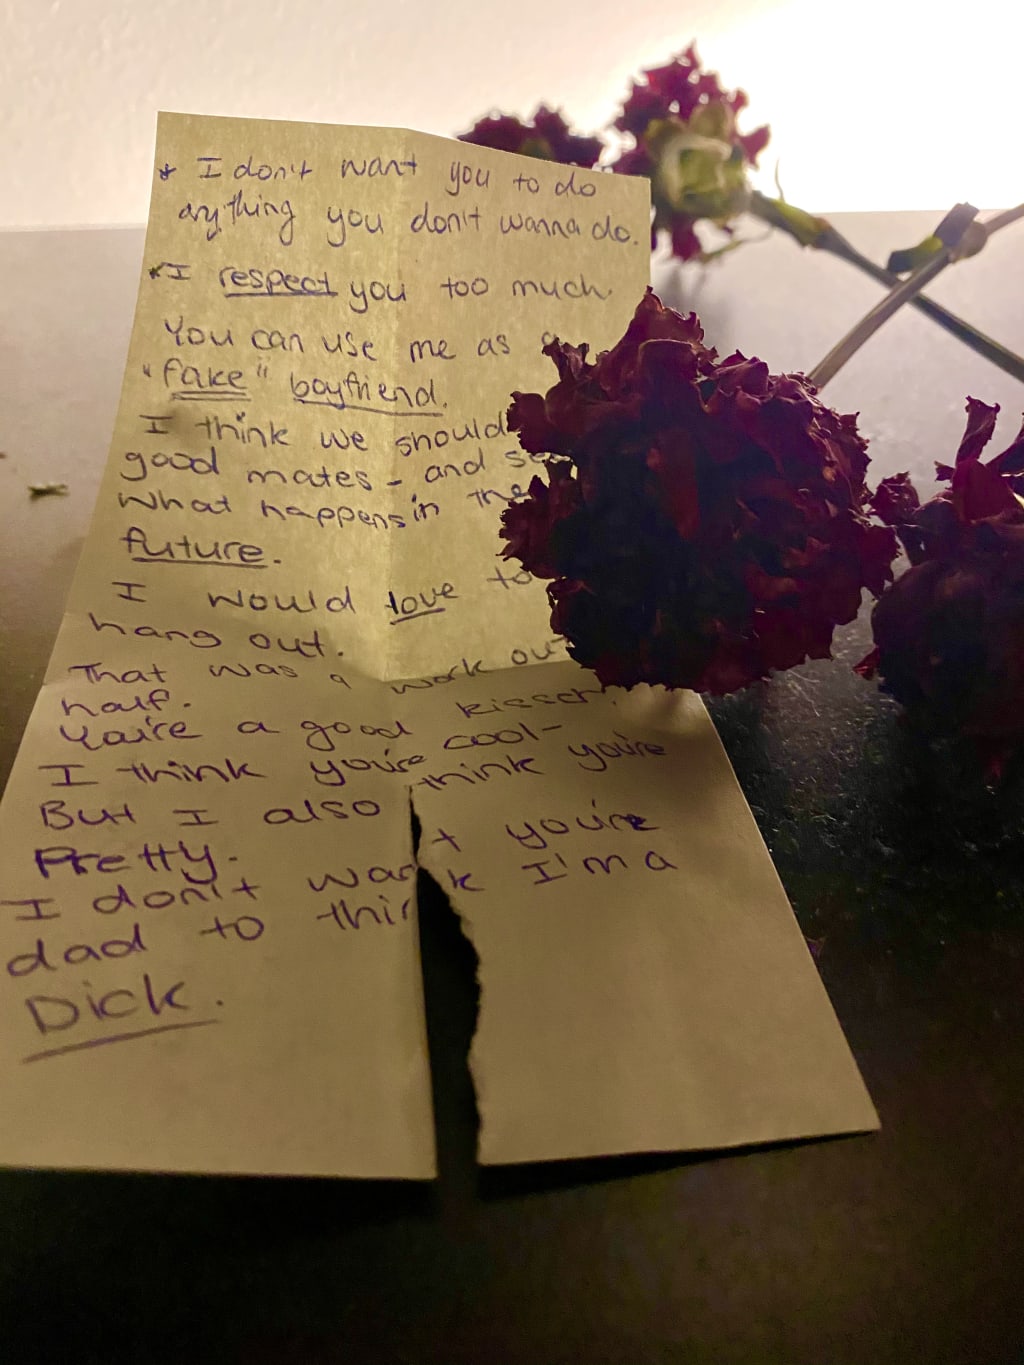 * I don't want you to do
anything you don't wanna do.
* I respect you too much.
You can use me as a
"fake" boyfriend.
I think we should
good mates - and
what happens in the
future.
I would love to
hang out.
That was a work out
half.
You're a good kisser!
I think you're cool-
But I also think you're
Pretty.
I don't want you're
dad to think I'm a
Dick.